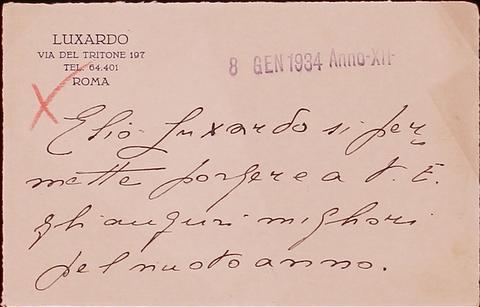 LUXARDO
VIA DEL TRITONE 197
TEL. 64.401
ROMA
8 GEN 1934 Anno-XII-
Elio Luxardo si per
mette porgere a V. E.
gli auguri migliori
pel nuovo anno.